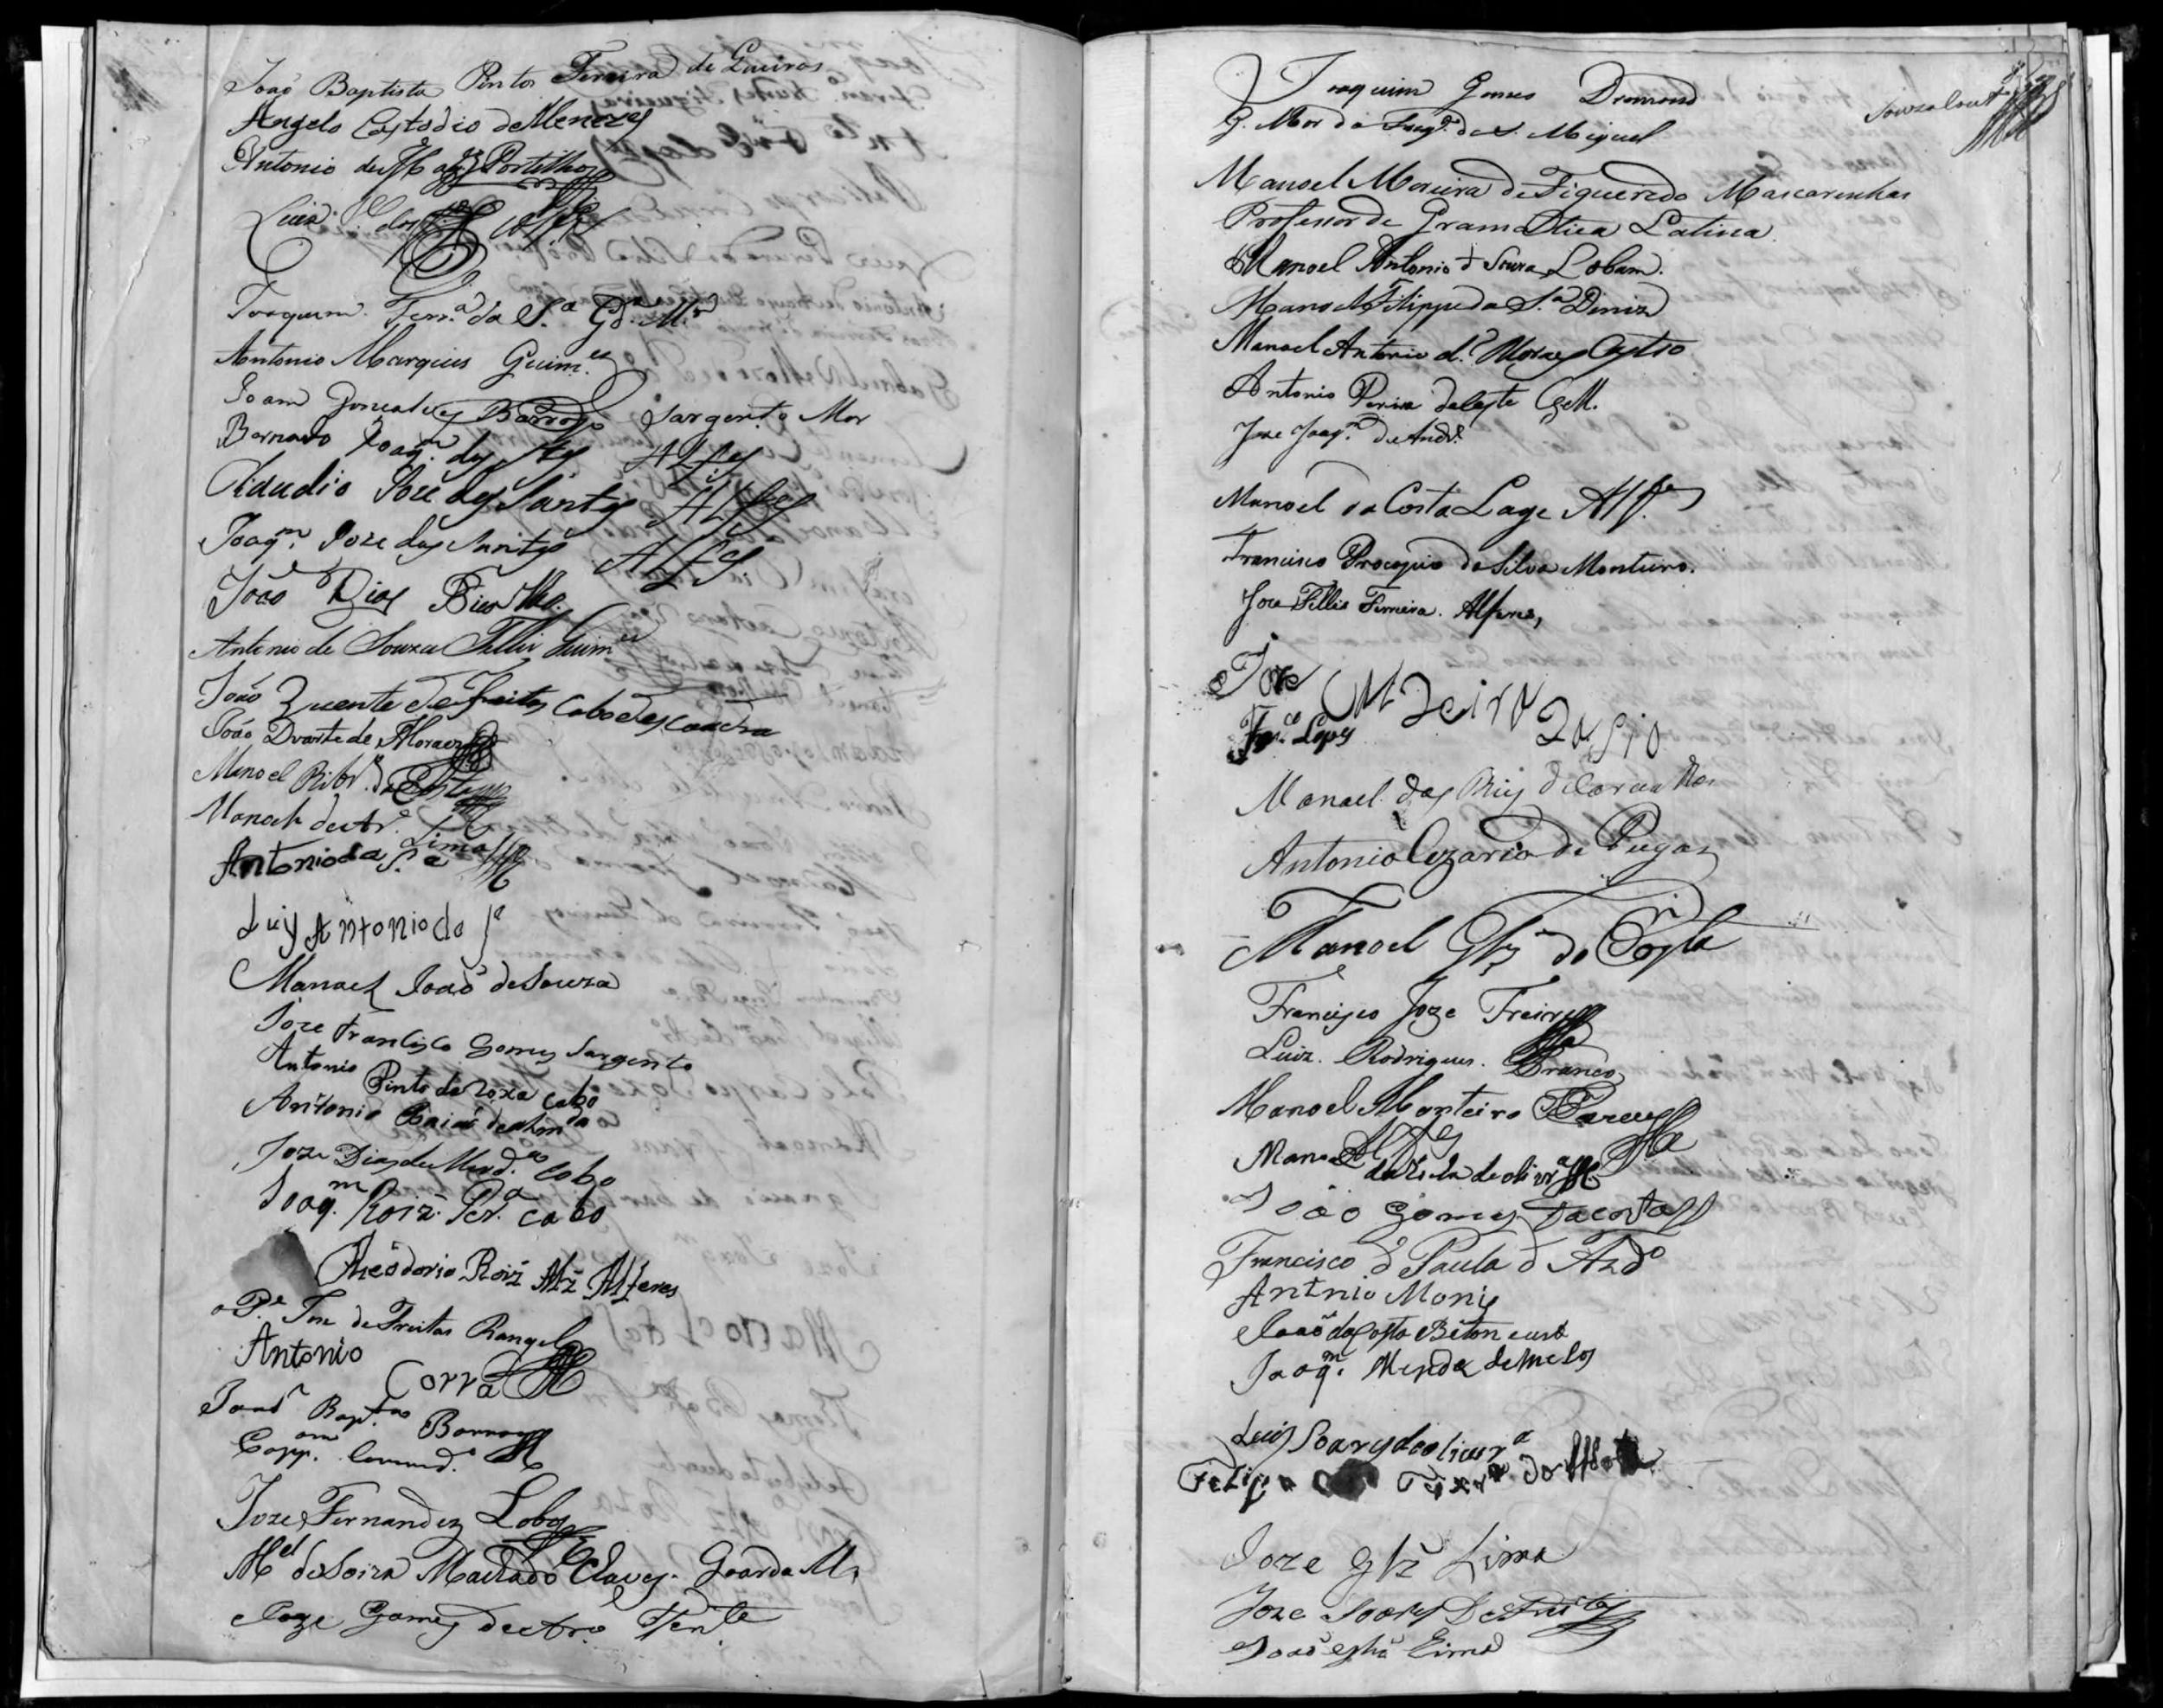 João Baptista Pinto Ferreira de Queiros
Angelo Custodio de Menezes
Antonio de Portilho
Luiz
Joaquim Ferr.ª da S.ª Gd. M.or
Antonio Marques Guim.es
Joam Goncalves Barrozo Sargento Mor
Bernardo Joaq.m dos Stos Alfes
Claudio Joze dos Santos Alfes
Joaq.m Joze dos Santos Alfes
João Dias Bicalho.
Antonio de Souza Telles Guim.es
João de Freitas Cabo de escoadra
João Duarte de Moraes
Manoel Ribr.o da Costa
Manoel de Ar.o Lima
Antonio da S.ª
Luis Antonio da S.ª
Manoel João de Souza
Joze Francisco Gomes Sargento
Antonio Pinto da Roxa Cabo
Antonio
Joze Dias de Mend.ca Cabo
Joaq.m Roiz Per.ª Cabo
Theodorio Roiz Alz Alferes
o P.e Joze de Freitas Rangel
Antonio Corrª
Joaõ Bapt.ta Barros
Capp.am Comand.e
Joze Fernandez Lobo
M.el de Soiza Machado Chaves. Goarda M.
Joze Gomes de Aro Tente
Souza Cout.o
Joaquim Gomes Dromond
G. Mor da Freg.ª de S. Miguel
Manoel Moreira de Figueredo Mascarenhas
Professor de Gramatica Latina
Manoel Antonio d Souza Lobam.
Manoel Filippe da S.ª Deniz
Manoel Antonio d. Moraes Castro
Antonio Pereira da Coste G.M.
Joze Joaq.m de Andr.e
Manoel da Costa Lage Alf.es
Francisco Procopio da Silva Monteiro.
Joze Telles Ferreira. Alferes,
Joze
Fr.co Lopes
Manoel dos Reis d Carvalho
Antonio Cezario de
Manoel Glz da Costa
Francisco Joze Freire
Luiz. Rodrigues. Branco
Manoel Monteiro
Manoel
da Silva de olivr.ª
João Gomes Dacosta
Francisco d Paula d And.e
Antnio Moniz
João da Costa Betoncurt
Joaq.m Mendes de Melos
Luis Soares de oliver.ª
Felipe
Joze Glz Lima
Joze Soares De Freitas
João Lima